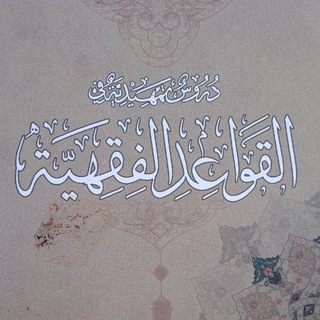 دُرُوسٌ تَمْهِيدِيَّةٌ فِي
القَوَاعِدِ الفِقْهِيَّةِ